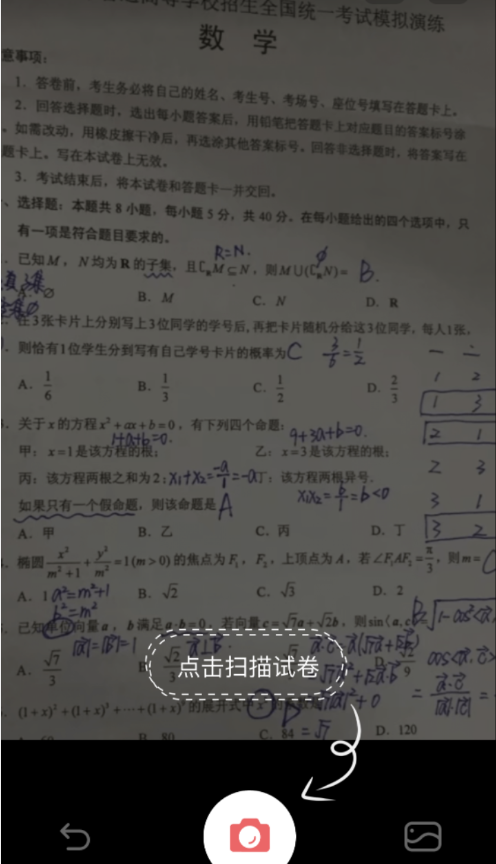 高等学校招生全国统一考试模拟演练
数 学
意事项：
1．答卷前，考生务必将自己的姓名、考生号、考场号、座位号填写在答题卡上。
2．回答选择题时，选出每小题答案后，用铅笔把答题卡上对应题目的答案标号涂
。如需改动，用橡皮擦干净后，再选涂其他答案标号。回答非选择题时，将答案写在
题卡上。写在本试卷上无效。
3．考试结束后，将本试卷和答题卡一并交回。
、选择题：本题共 8 小题，每小题 5 分，共 40 分。在每小题给出的四个选项中，只
有一项是符合题目要求的。
R=N. ∅
．已知 M，N 均为 R 的子集，且∁RM⊆N，则 M∪(∁RN)= B.
A．∅ B．M C．N D．R
．在 3 张卡片上分别写上 3 位同学的学号后，再把卡片随机分给这 3 位同学，每人 1 张，
则恰有 1 位学生分到写有自己学号卡片的概率为 C 3/6=1/2 一 二
A．1/6 B．1/3 C．1/2 D．2/3 1 2
1 3
．关于 x 的方程 x²+ax+b=0，有下列四个命题：
1+a+b=0. 9+3a+b=0. 2 1
甲：x=1 是该方程的根； 乙：x=3 是该方程的根；
丙：该方程两根之和为 2；x₁+x₂=-a/1=-a 丁：该方程两根异号． 2 3
如果只有一个假命题，则该命题是 A x₁x₂=b/1=b<0 3 1
A．甲 B．乙 C．丙 D．丁 3 2
．椭圆 x²/(m²+1)+y²/m²=1(m>0) 的焦点为 F₁，F₂，上顶点为 A，若∠F₁AF₂=π/3，则 m= C
A．1 a²=m²+1 B．√2 C．√3 D．2
b²=m²
．已知单位向量 a，b 满足 a·b=0，若向量 c=√7a+√2b，则 sin⟨a,c
|a|=|b|=1 a⊥b
A．√7/3 √2/3 /9 cos<a,c>
=a·c/|a||c|=
．(1+x)²+(1+x)³+⋯+(1+x) 的展开式中 x
60 B．80 C．84 =√7 D．120
点击扫描试卷